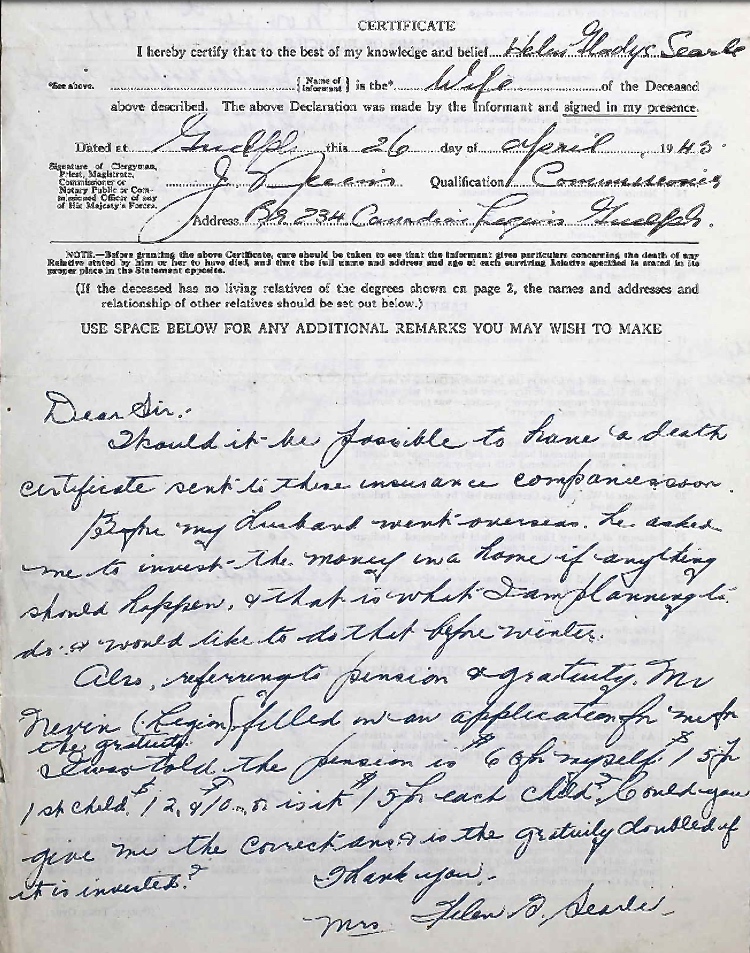 CERTIFICATE
I hereby certify that to the best of my knowledge and belief Helen Gladys Searle
*See above. {Name of Informant} is the* Wife of the Deceased
above described. The above Declaration was made by the Informant and signed in my presence.
Dated at Guelph this 26 day of April, 1945.
Signature of Clergyman, Priest, Magistrate, Commissioner or Notary Public or Commissioned Officer of any of His Majesty's Forces.
J Nevin Qualification Commissioner
Address Br 234 Canadian Legion Guelph.
NOTE.—Before granting the above Certificate, care should be taken to see that the informant gives particulars concerning the death of any
Relative stated by him or her to have died, and that the full name and address and age of each surviving Relative specified is stated in its
proper place in the Statement opposite.
(If the deceased has no living relatives of the degrees shown on page 2, the names and addresses and
relationship of other relatives should be set out below.)
USE SPACE BELOW FOR ANY ADDITIONAL REMARKS YOU MAY WISH TO MAKE
Dear Sir:-
Would it be possible to have a death
certificate sent to these insurance companies soon.
Before my husband went overseas he asked
me to invest the money in a home if anything
should happen, & that is what I am planning to
do. & would like to do that before winter.
Also, referring to pension & gratuity. Mr
Nevin (Legion) filled in an application for me for
the gratuity.
I was told the pension is $60 for myself. $15 for
1st child. $12, $10., or is it $15 for each child? Could you
give me the corrections & is the gratuity doubled if
it is invested?
Thank you.
Mrs Helen G. Searle